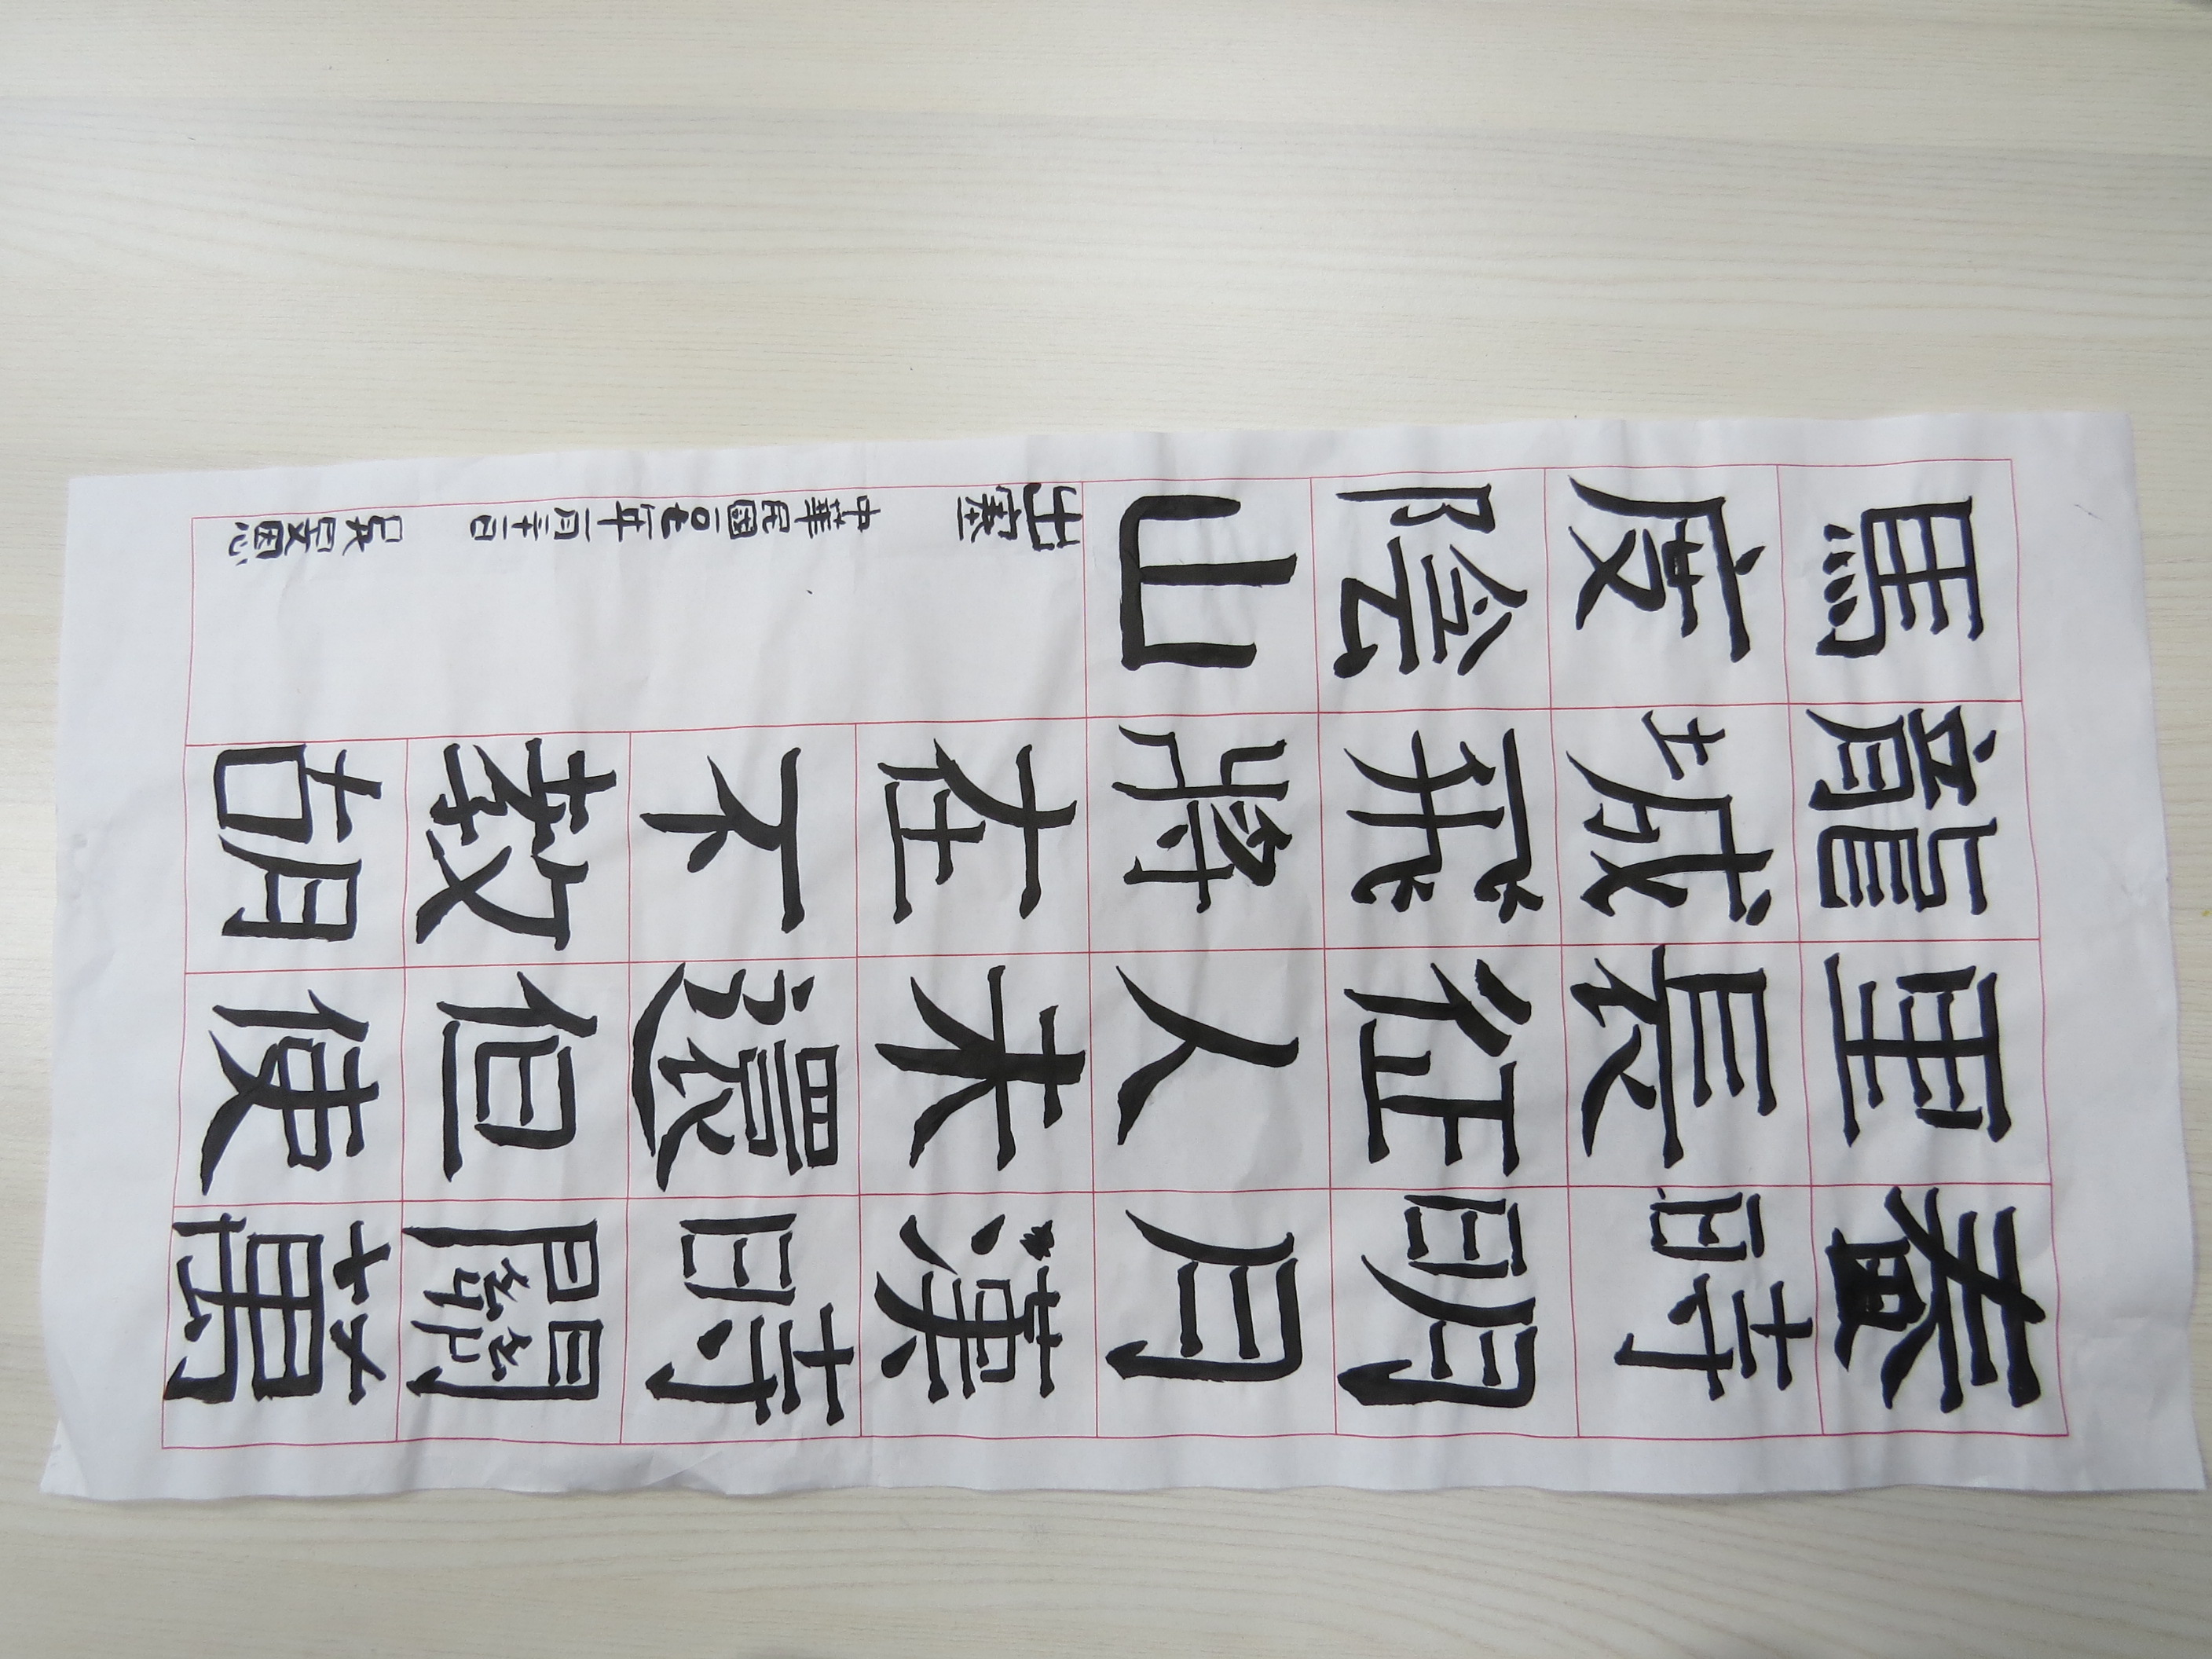 秦時明月漢時關萬
里長征人未還但使
龍城飛將在不教胡
馬度陰山
出塞 中華民國一〇七年一月二十二日 吳旻恩